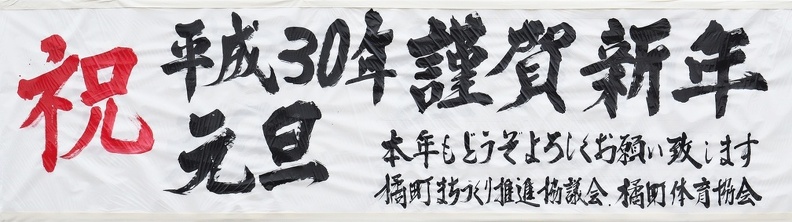 祝
平成30年 謹賀新年
元旦
本年もどうぞよろしくお願い致します
橘町まちづくり推進協議会．橘町体育協会